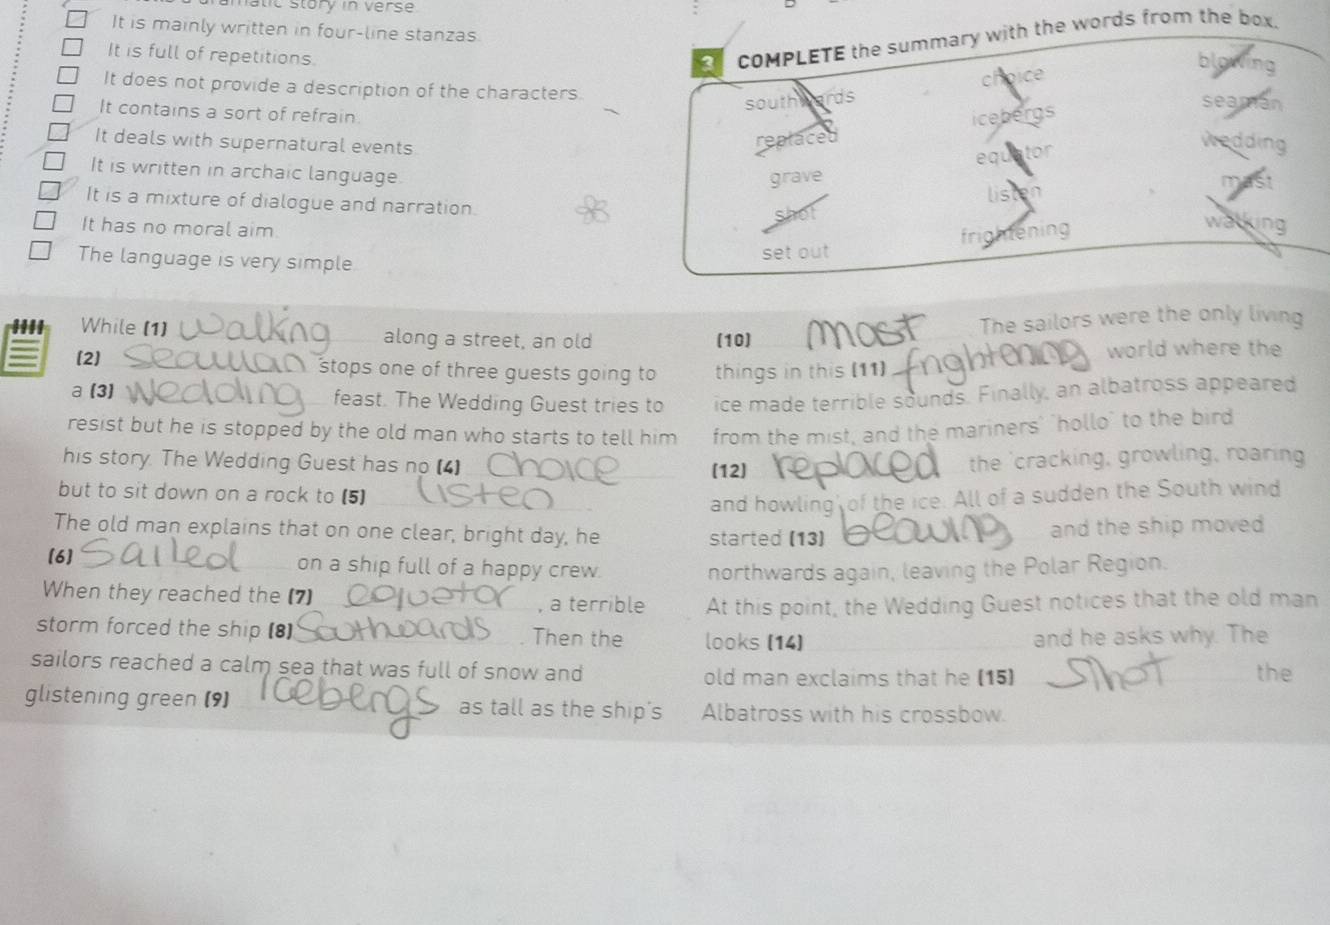 story in verse.
It is mainly written in four-line stanzas.
It is full of repetitions.
It does not provide a description of the characters.
It contains a sort of refrain.
It deals with supernatural events.
It is written in archaic language.
It is a mixture of dialogue and narration.
It has no moral aim.
The language is very simple.
3 COMPLETE the summary with the words from the box.
southwards choice blowing
replaced icebergs seaman
grave equator wedding
shot listen mast
set out frightening walking
While (1) walking along a street, an old
(2) seauian stops one of three guests going to
a (3) Wedding feast. The Wedding Guest tries to
resist but he is stopped by the old man who starts to tell him
his story. The Wedding Guest has no (4) Choice
but to sit down on a rock to (5) listen
The old man explains that on one clear, bright day, he
(6) Sailed on a ship full of a happy crew.
When they reached the (7) equetor, a terrible
storm forced the ship (8) Southwards. Then the
sailors reached a calm sea that was full of snow and
glistening green (9) icebergs as tall as the ship's
(10) most The sailors were the only living
things in this (11) frightening world where the
ice made terrible sounds. Finally, an albatross appeared
from the mist, and the mariners' 'hollo' to the bird
(12) replaced the 'cracking, growling, roaring
and howling' of the ice. All of a sudden the South wind
started (13) beawing and the ship moved
northwards again, leaving the Polar Region.
At this point, the Wedding Guest notices that the old man
looks (14) and he asks why. The
old man exclaims that he (15) Shot the
Albatross with his crossbow.